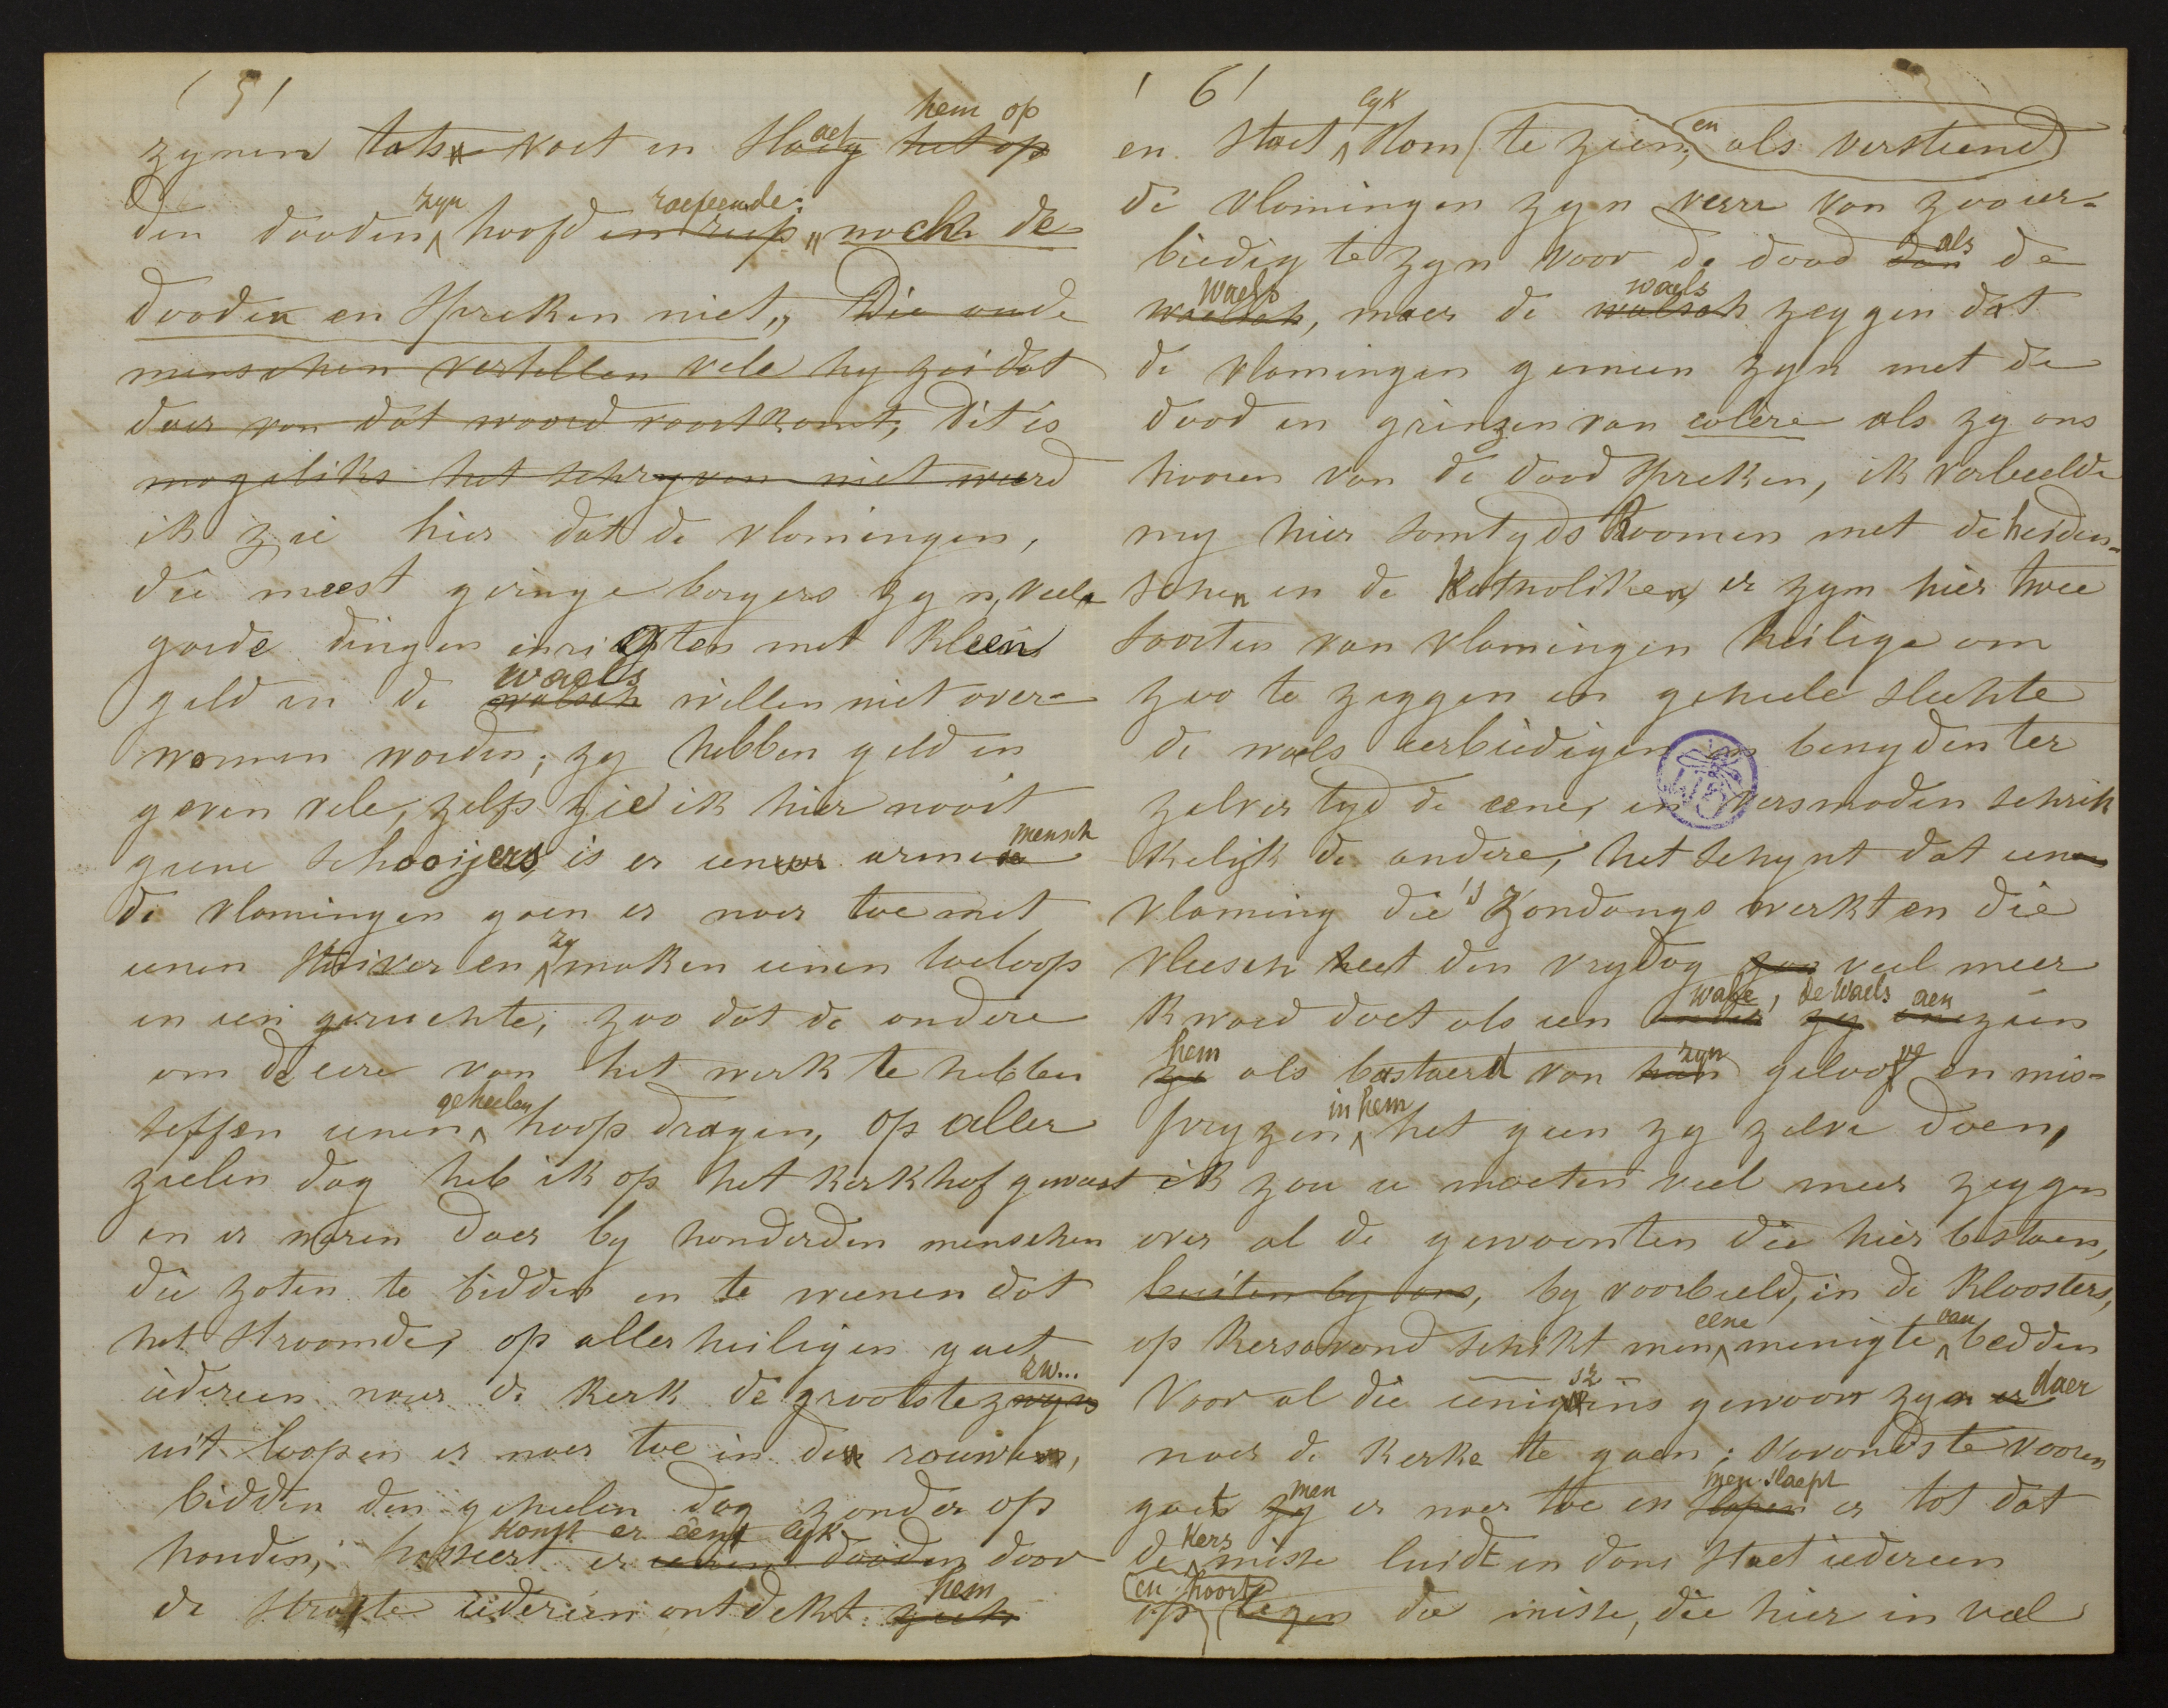 (5)
hem op
zynen tots voet en Slaeg het op
zyn roepende:
den dooden hoofd en riep „nochk de
dooden en spreken niet„ Die oude
menschen vertellen vele hy zei dat
daer van dat woord voortkomt, dit is
mogeliks het schryven niet weerd
ik zie hier dat de vlamingen,
die meest geringe borgers zyn, veele
goede dingen inrigten met kleen
waels
geld en de walsch willen niet over-
wonnen worden; zy hebben geld en
geven vele, zelfs zie ik hier nooit
mensch
geene schooijers, is er eenen armen
de vlamingen gaen er naer toe met
zy
eenen stuiver en maken eenen toeloop
en een geruchte; zoo dat de andere
om de eere van het werk te hebben
geheelen
seffen eenen hoop dragen, op aller
zielen dag heb ik op het kerkhof geweest
en er waren daer by honderden menschen
die zaten te bidden en te weenen dat
het stroomde, op allerheiligen gaet
zw...
iedereen naer de kerk de grootste zwyns
uit loopen er naer toe in den rouwen,
bidden den geheelen dag zonder op
komt er een lyk
houden; passeert er eenen dooden door
hem
de straete iedereen ontdekt zich
(6)
lyk
en staet stom (te zien, en als versteend)
de vlamingen zyn verre van zoo eer-
als
biedig te zyn voor de dood dan de
Waels waels
waelsch, maer de walsch zeggen dat
de vlamingen gemeen zyn met de
dood en grinzen van colère als zy ons
hooren van de dood spreken, ik verbeelde
my hier somtyds Roomen met de heiden-
schen en de Katholiken, er zyn hier twee
soorten van vlamingen heilige om
zoo te zeggen en geheele slechte
de waels eerbiedigen en benyden ter
zelver tyd de eene, en versmaden schrik
kelijk de andere, het schynt dat eenen
vlaming die 's zondangs werkt en die
vleesch heet den vrydag zoo veel meer
wale, de Waels aen
kwaed doet als een ander zy one zien
hem zyn
ze als bastaerd van hun geloove en mis-
in hem
pryzen het geen zy zelve doen,
ik zou u moeten veel meer zeggen
over al de gewoonten die hier bestaen,
buiten by ons, by voorbeeld, in de kloosters,
eene van
op kersavond schikt men menigte bedden
sz
Voor al die eenigzins gewoon zyn er daer
naer de kerke te gaen; s'avonds te vooren
men men slaept
gaet zy er naer toe en slapen er tot dat
Kers
de misse luidt en dan staet iedereen
(en hoort)
op tegen de misse, die hier in veel